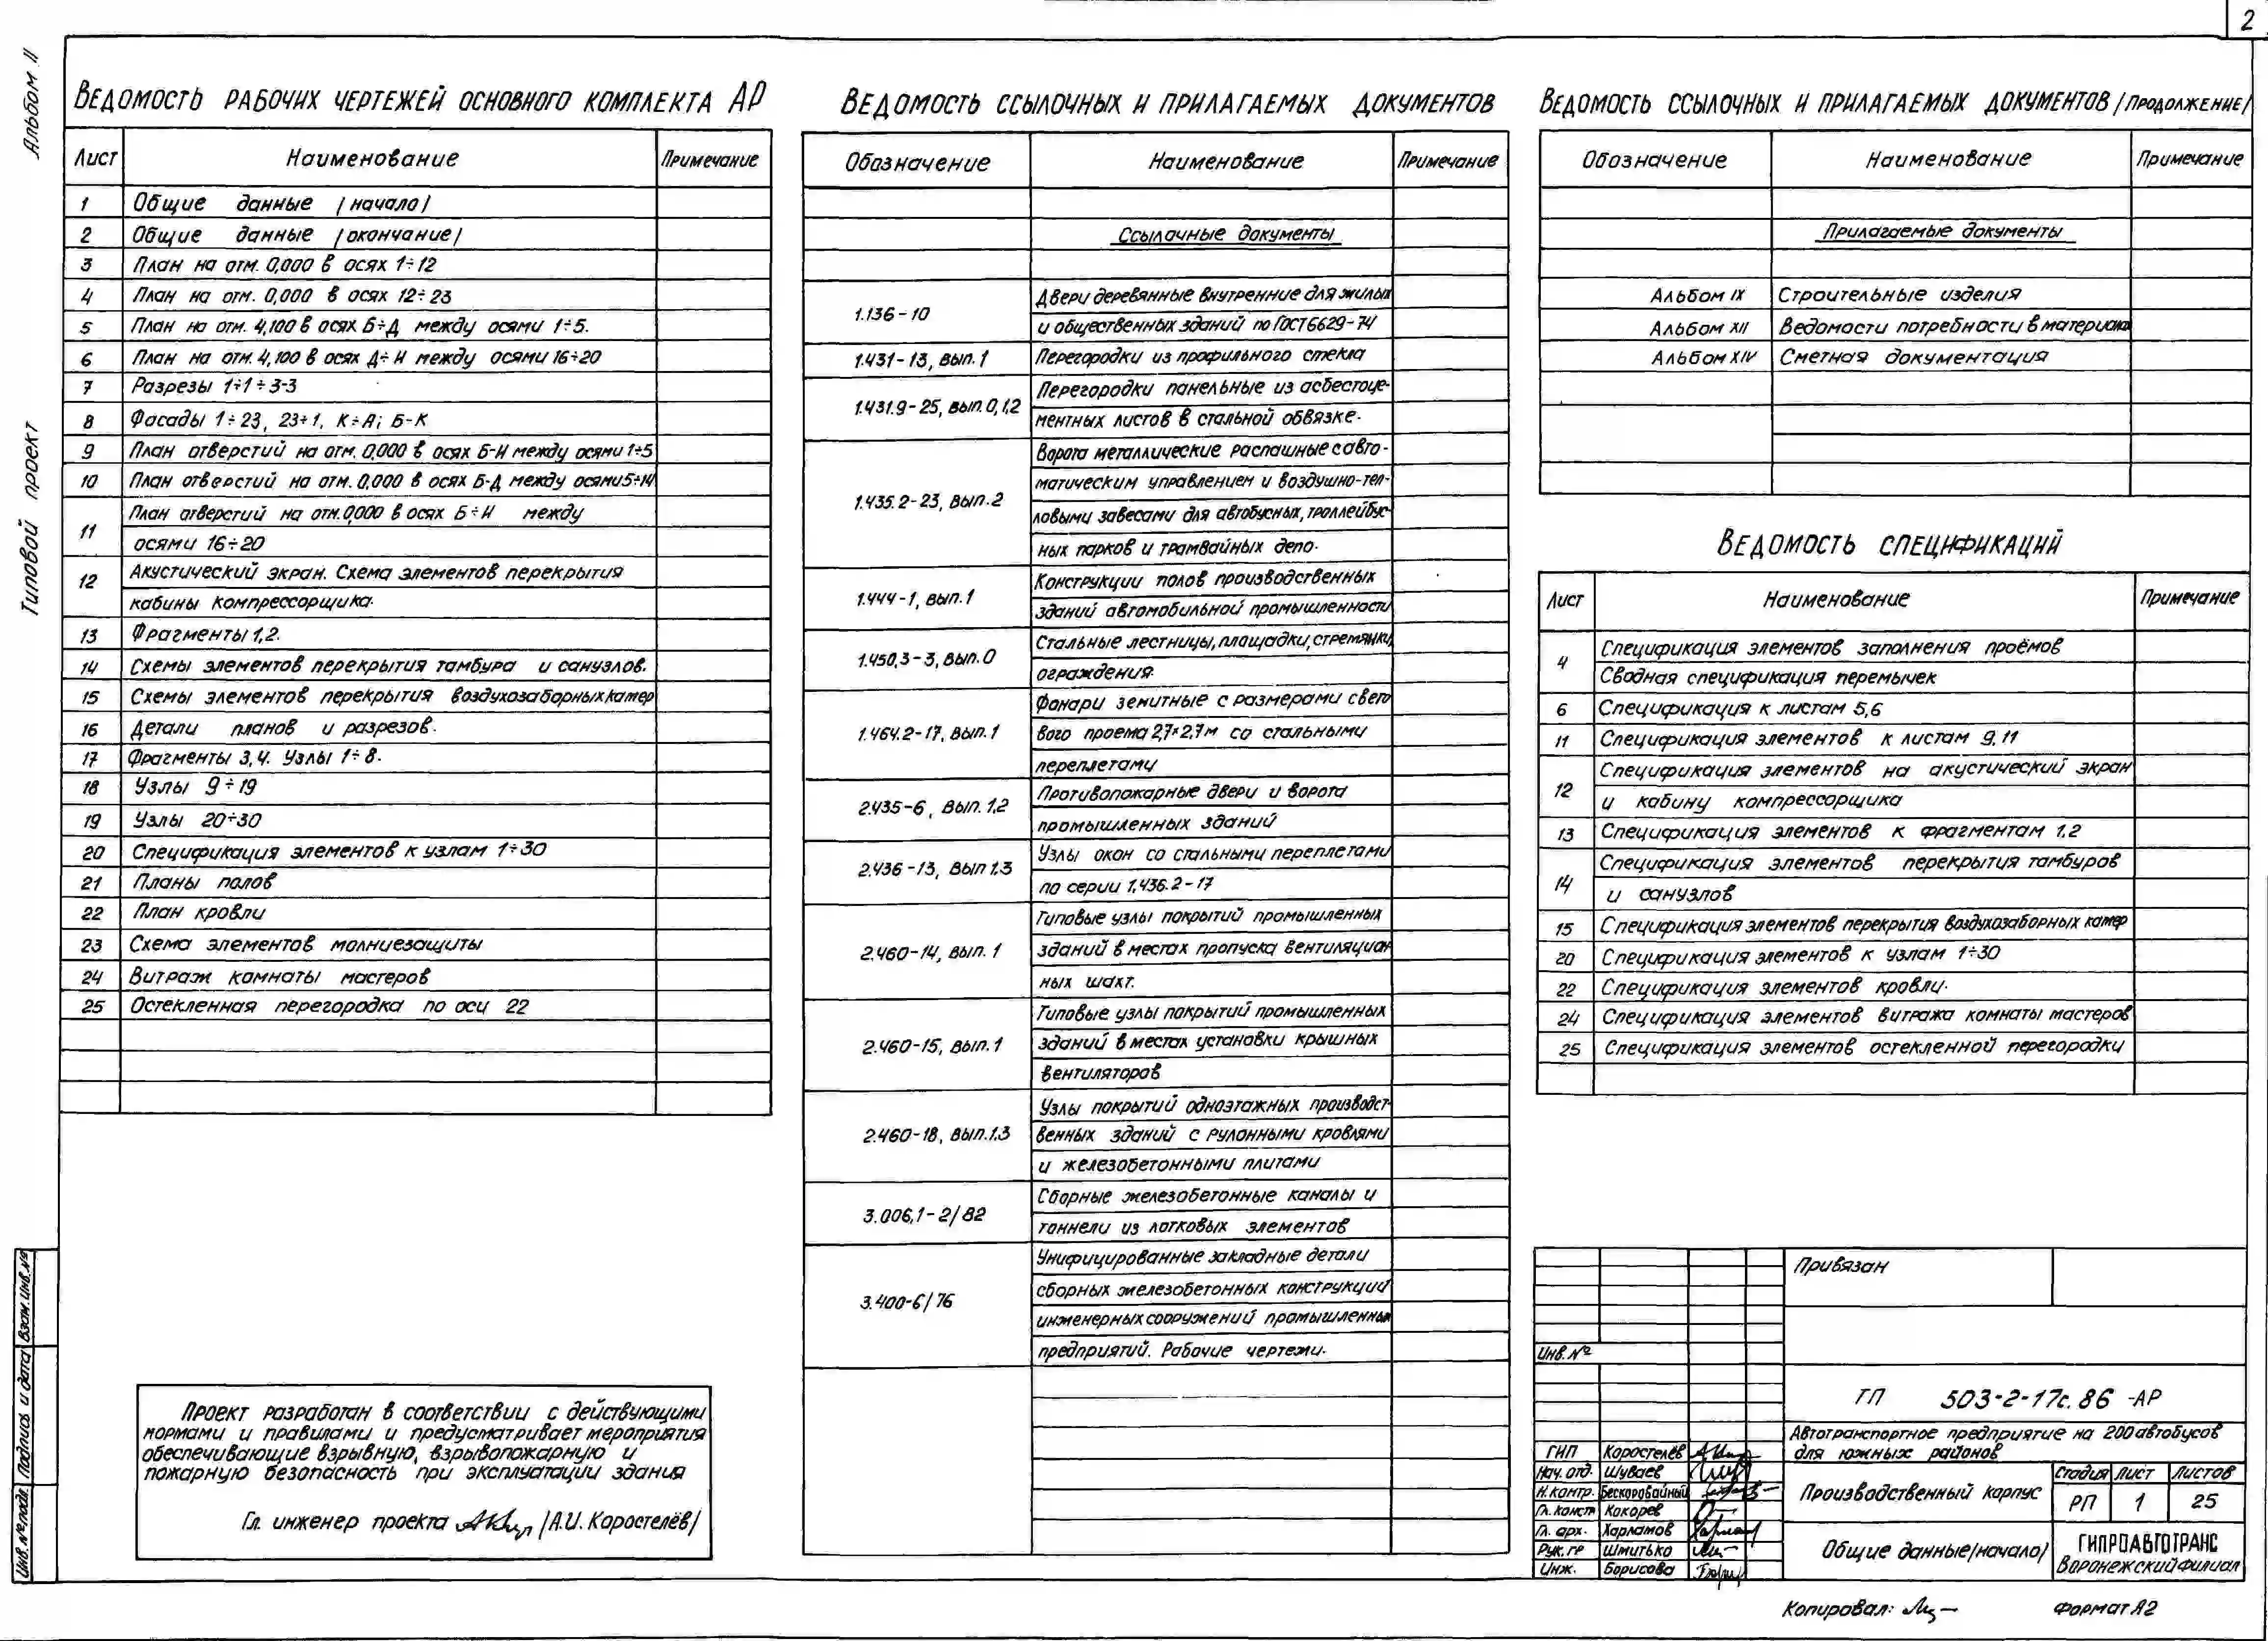 2
Альбом II
Типовой проект
Ведомость рабочих чертежей основного комплекта АР
Лист Наименование Примечание
1 Общие данные /начало/
2 Общие данные /окончание/
3 План на отм. 0,000 в осях 1÷12
4 План на отм. 0,000 в осях 12÷23
5 План на отм. 4,100 в осях Б÷Д между осями 1÷5.
6 План на отм. 4,100 в осях Д÷И между осями 16÷20
7 Разрезы 1÷1÷3-3
8 Фасады 1÷23, 23÷1, К÷А; Б-К
9 План отверстий на отм. 0,000 в осях Б-И между осями 1÷5
10 План отверстий на отм. 0,000 в осях Б-Д между осями 5÷14
11 План отверстий на отм. 0,000 в осях Б÷И между
осями 16÷20
12 Акустический экран. Схема элементов перекрытия
кабины компрессорщика.
13 Фрагменты 1,2.
14 Схемы элементов перекрытия тамбура и санузлов.
15 Схемы элементов перекрытия воздухозаборных камер
16 Детали планов и разрезов.
17 Фрагменты 3,4. Узлы 1÷8.
18 Узлы 9÷19
19 Узлы 20÷30
20 Спецификация элементов к узлам 1÷30
21 Планы полов
22 План кровли
23 Схема элементов молниезащиты
24 Витраж комнаты мастеров
25 Остекленная перегородка по оси 22
Проект разработан в соответствии с действующими
нормами и правилами и предусматривает мероприятия
обеспечивающие взрывную, взрывопожарную и
пожарную безопасность при эксплуатации здания
Гл. инженер проекта /А.И. Коростелёв/
Ведомость ссылочных и прилагаемых документов
Обозначение Наименование Примечание
Ссылочные документы
1.136-10 Двери деревянные внутренние для жилых
и общественных зданий по ГОСТ 6629-74
1.431-13, вып.1 Перегородки из профильного стекла
1.431.9-25, вып.0,1,2 Перегородки панельные из асбестоце-
ментных листов в стальной обвязке.
1.435.2-23, вып.2 Ворота металлические распашные с авто-
матическим управлением и воздушно-теп-
ловыми завесами для автобусных, троллейбус-
ных парков и трамвайных депо.
1.444-1, вып.1 Конструкции полов производственных
зданий автомобильной промышленности
1.450,3-3, вып.0 Стальные лестницы, площадки, стремянки,
ограждения.
1.464.2-17, вып.1 Фонари зенитные с размерами свето
вого проема 2,7×2,7м со стальными
переплетами
2.435-6, вып. 1,2 Противопожарные двери и ворота
промышленных зданий
2.436-13, вып 1,3 Узлы окон со стальными переплетами
по серии 1.436.2-17
2.460-14, вып. 1 Типовые узлы покрытий промышленных
зданий в местах пропуска вентиляцион
ных шахт.
2.460-15, вып.1 Типовые узлы покрытий промышленных
зданий в местах установки крышных
вентиляторов
2.460-18, вып.1,3 Узлы покрытий одноэтажных производст-
венных зданий с рулонными кровлями
и железобетонными плитами
3.006,1-2/82 Сборные железобетонные каналы и
тоннели из лотковых элементов
3.400-6/76 Унифицированные закладные детали
сборных железобетонных конструкций
инженерных сооружений промышленных
предприятий. Рабочие чертежи.
Ведомость ссылочных и прилагаемых документов /продолжение/
Обозначение Наименование Примечание
Прилагаемые документы
Альбом IX Строительные изделия
Альбом XII Ведомости потребности в материалах
Альбом XIV Сметная документация
Ведомость спецификаций
Лист Наименование Примечание
4 Спецификация элементов заполнения проёмов
Сводная спецификация перемычек
6 Спецификация к листам 5,6
11 Спецификация элементов к листам 9,11
12 Спецификация элементов на акустический экран
и кабину компрессорщика
13 Спецификация элементов к фрагментам 1,2
14 Спецификация элементов перекрытия тамбуров
и санузлов
15 Спецификация элементов перекрытия воздухозаборных камер
20 Спецификация элементов к узлам 1÷30
22 Спецификация элементов кровли.
24 Спецификация элементов витража комнаты мастеров
25 Спецификация элементов остекленной перегородки
Привязан
Инв.№
ТП 503-2-17с.86 -АР
Автотранспортное предприятие на 200 автобусов
для южных районов
ГИП Коростелёв
Нач. отд. Шуваев
Н.контр. Бескоровайный
Гл.конст Кокорев
Гл. арх. Харламов
Рук.гр Шмитько
Инж. Борисова
Производственный корпус
Стадия Лист Листов
РП 1 25
Общие данные /начало/
ГИПРОАВТОТРАНС
Воронежский филиал
Копировал:
Формат А2
Инв.№ подл. Подпись и дата Взам.инв.№